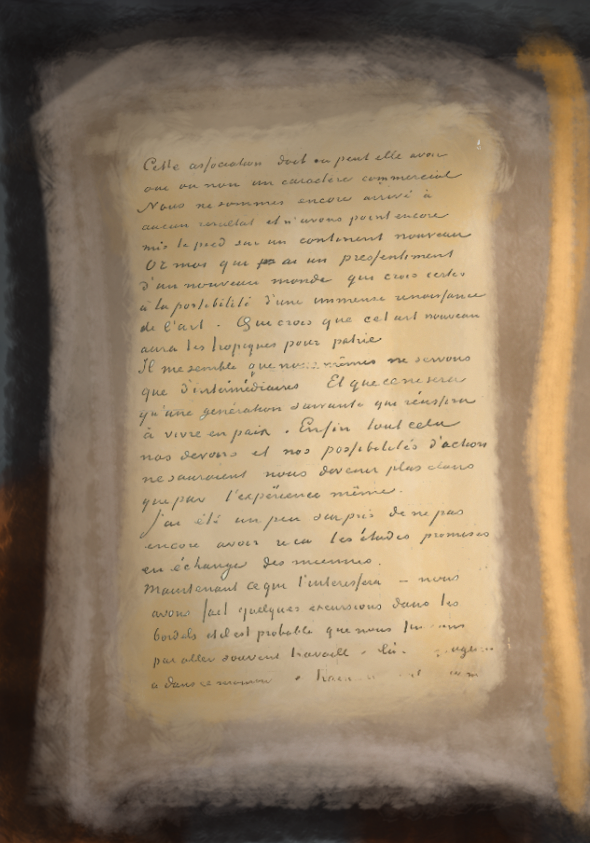 Cette association doit ou peut elle avoir
oui ou non un caractère commercial
Nous ne sommes encore arrivé à
aucun resultat et n'avons point encore
mis le pied sur un continent nouveau
Or moi qui ai un pressentiment
d'un nouveau monde qui crois certes
à la possibilité d'une immense renaissance
de l'art. Qui crois que cet art nouveau
aura les tropiques pour patrie
Il me semble que nous mêmes ne servons
que d'intermédiaires Et que ce ne sera
qu'une génération suivante qui réussira
à vivre en paix. Enfin tout cela
nos devoirs et nos possibilités d'action
ne sauraient nous devenir plus clairs
que par l'expérience même.
J'ai été un peu surpris de ne pas
encore avoir recu les études promises
en échange des miennes.
Maintenant ce qui t'interessera – nous
avons fait quelques excursions dans les
bordels et il est probable que nous
par aller souvent travailler là.
a dans ce moment